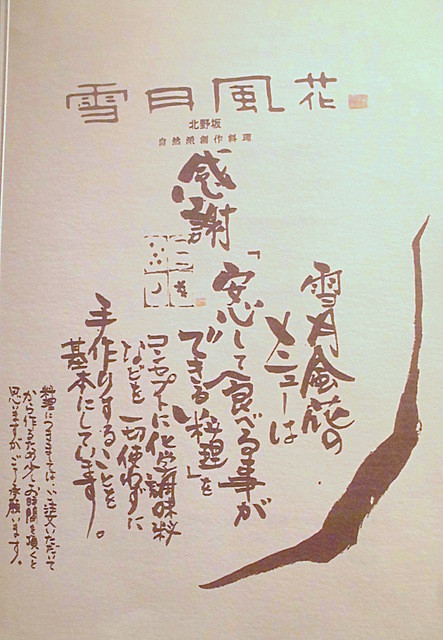 雪月風花
北野坂
自然派創作料理
感謝
雪月風花の
メニューは
「安心して食べる事が
できる料理」を
コンセプトに化学調味料
などを一切使わずに
手作りすることを
基本にしています。
料理につきましては、ご注文いただいて
から作るため少々お時間を頂くと
思いますがご了承願います。